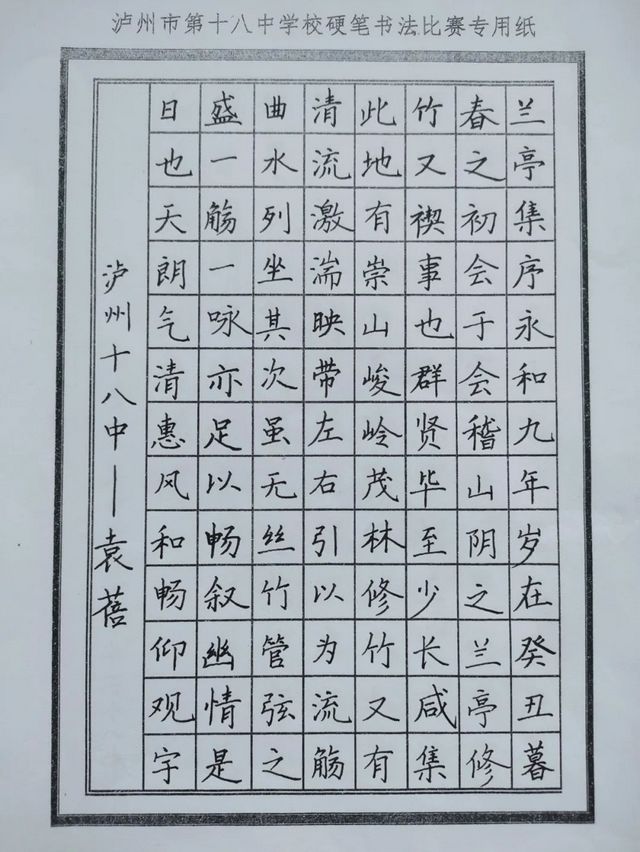 泸州市第十八中学校硬笔书法比赛专用纸
兰亭集序永和九年岁在癸丑暮
春之初会于会稽山阴之兰亭修
竹又禊事也群贤毕至少长咸集
此地有崇山峻岭茂林修竹又有
清流激湍映带左右引以为流觞
曲水列坐其次虽无丝竹管弦之
盛一觞一咏亦足以畅叙幽情是
日也天朗气清惠风和畅仰观字
泸州十八中—袁蓓